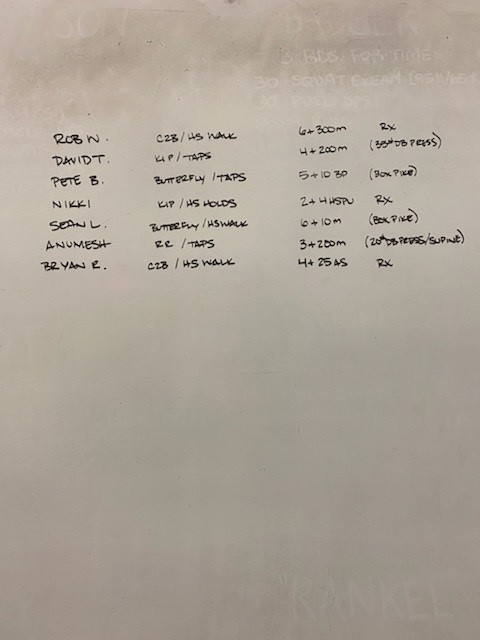 3 RDS FOR TIME
30 SQUAT CLEAN
ROB W. C2B / HS WALK 6+300m RX
DAVID T. KIP / TAPS 4+200m (35# DB PRESS)
PETE B. BUTTERFLY / TAPS 5+10 BP (BOX PIKE)
NIKKI KIP / HS HOLDS 2+4 HSPU RX
SEAN L. BUTTERFLY / HS WALK 6+10m (BOX PIKE)
ANUMESH RR / TAPS 3+200m (20# DB PRESS/SUPINE)
BRYAN R. C2B / HS WALK 4+25 AS RX
RANKEL